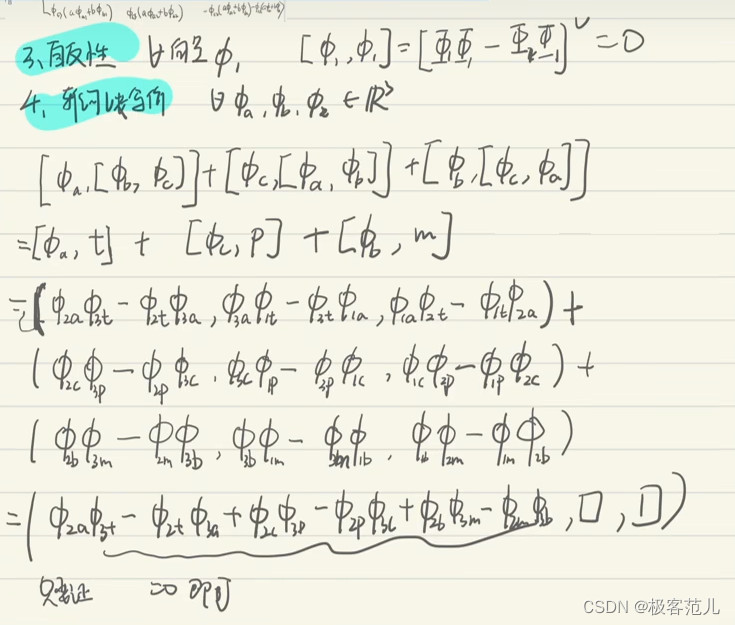 3、自反性 ∀向量 ϕ₁ [ϕ₁, ϕ₁] = [Φ₁Φ₁ − Φ₁Φ₁]^∨ = 0
4、雅可比等价 ∀ ϕa, ϕb, ϕz ∈ ℝ³
[ϕa, [ϕb, ϕc]] + [ϕc, [ϕa, ϕb]] + [ϕb, [ϕc, ϕa]]
= [ϕa, t] + [ϕc, p] + [ϕb, m]
= (ϕ2aϕ3t − ϕ2tϕ3a, ϕ3aϕ1t − ϕ3tϕ1a, ϕ1aϕ2t − ϕ1tϕ2a) +
(ϕ2cϕ3p − ϕ2pϕ3c, ϕ3cϕ1p − ϕ3pϕ1c, ϕ1cϕ2p − ϕ1pϕ2c) +
(ϕ2bϕ3m − ϕ2mϕ3b, ϕ3bϕ1m − ϕ3mϕ1b, ϕ1bϕ2m − ϕ1mϕ2b)
= (ϕ2aϕ3t − ϕ2tϕ3a + ϕ2cϕ3p − ϕ2pϕ3c + ϕ2bϕ3m − ϕ2mϕ3b, □, □)
只需证 =0 即可
CSDN @极客范儿